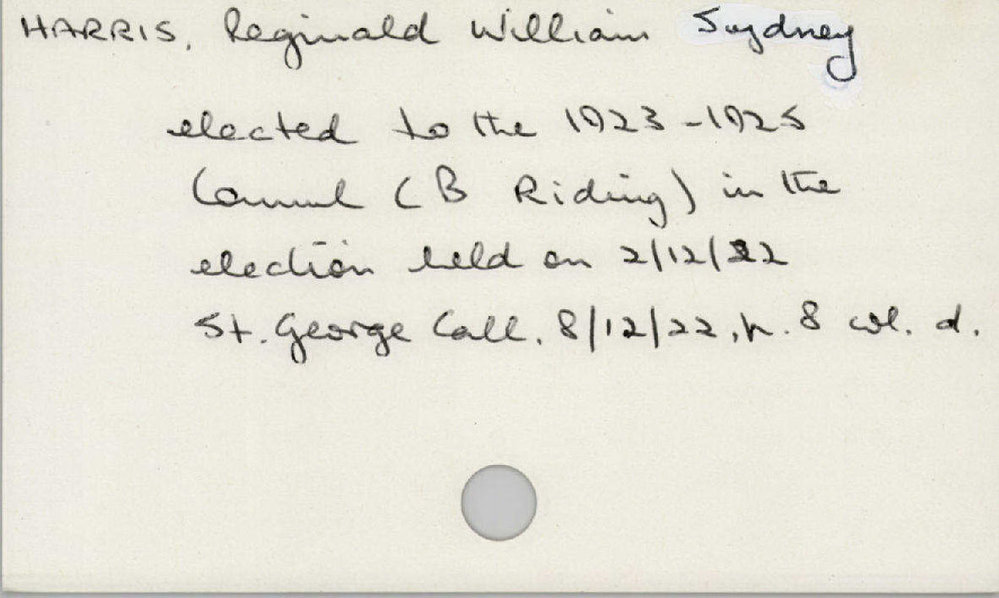 HARRIS, Reginald William Sydney
elected to the 1923-1925
Council (B Riding) in the
election held on 2/12/22
St. George Call. 8/12/22, p. 8 col. d.